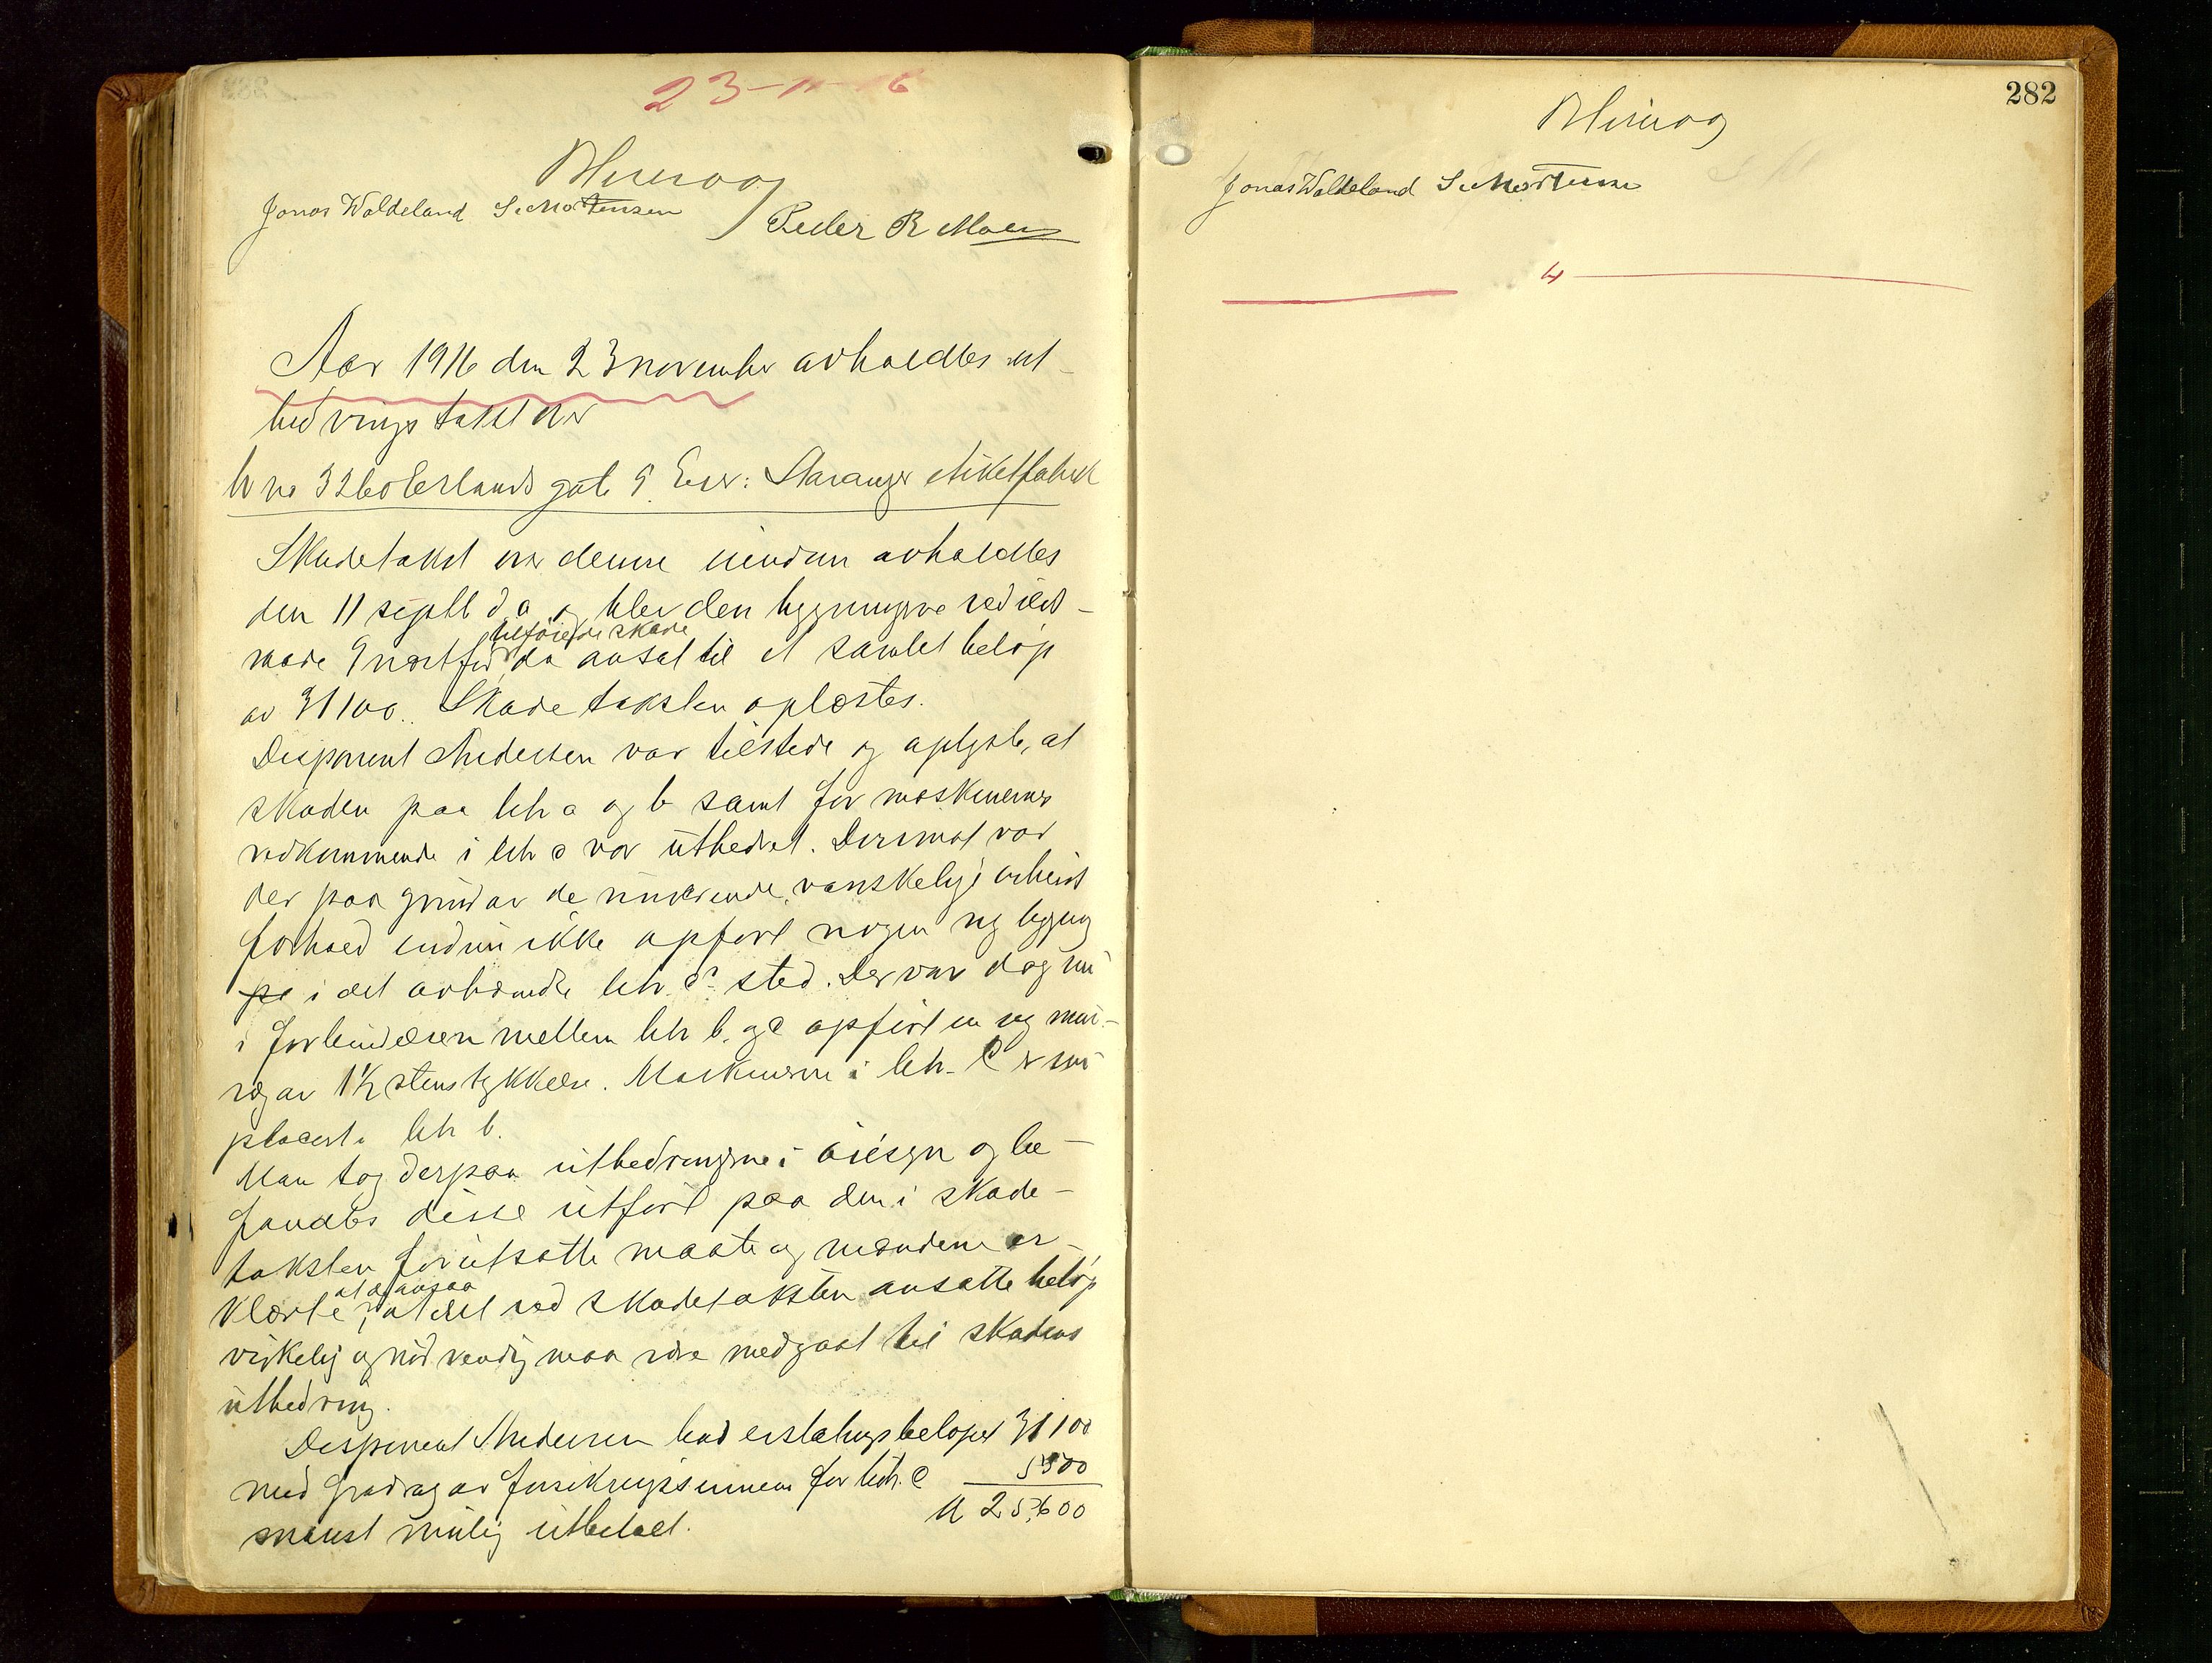 23-11-16
Jonas Waldeland S. Mortensen
Peder R Moen
Aar 1916 den 23 november avholdtes ut-
bedrings takst over
br no 32 Erlands gate 9. Eier: Stavanger etiketfabrik
Skadetakst over denne eiendom avholdtes
den 11 septb d.a. og blev den bygningerne ved ilds-
vaade tilföiede skade da ansat til et samlet beløp
av 31100.. Skadetaksten oplæstes.
Disponent Andersen var tilstede og oplyste, at
skaden paa litr a og b samt for maskinernes
vedkommende i litr c var utbedret. Derimot var
der paa grund av de nuværende vanskelige arbeids
forhold endnu ikke opført nogen ny bygning
pa i det avbrændte litr. c's sted. Der var dog nu
i forbindelsen mellem litr b. og c opført en ny mur-
væg av 1½ stens tykkelse. Maskinerne i litr. C er nu
placert i litr b.
Man tog derpaa utbedringerne i øiesyn og be-
fandtes disse utført paa den i skade-
taksten forutsatte maate og mændene er-
klærte, at de ansaa at det ved skadetaksten ansatte beløp
virkelig og nødvendig maa være medgaat til skadens
utbedring.
Disponent Andersen bad erstatningsbeløpet 31100
med fradrag av forsikringssummen for litr. C 5500
snarest mulig utbetalt. 25,600
282
Jonas Waldeland S. Mortensen